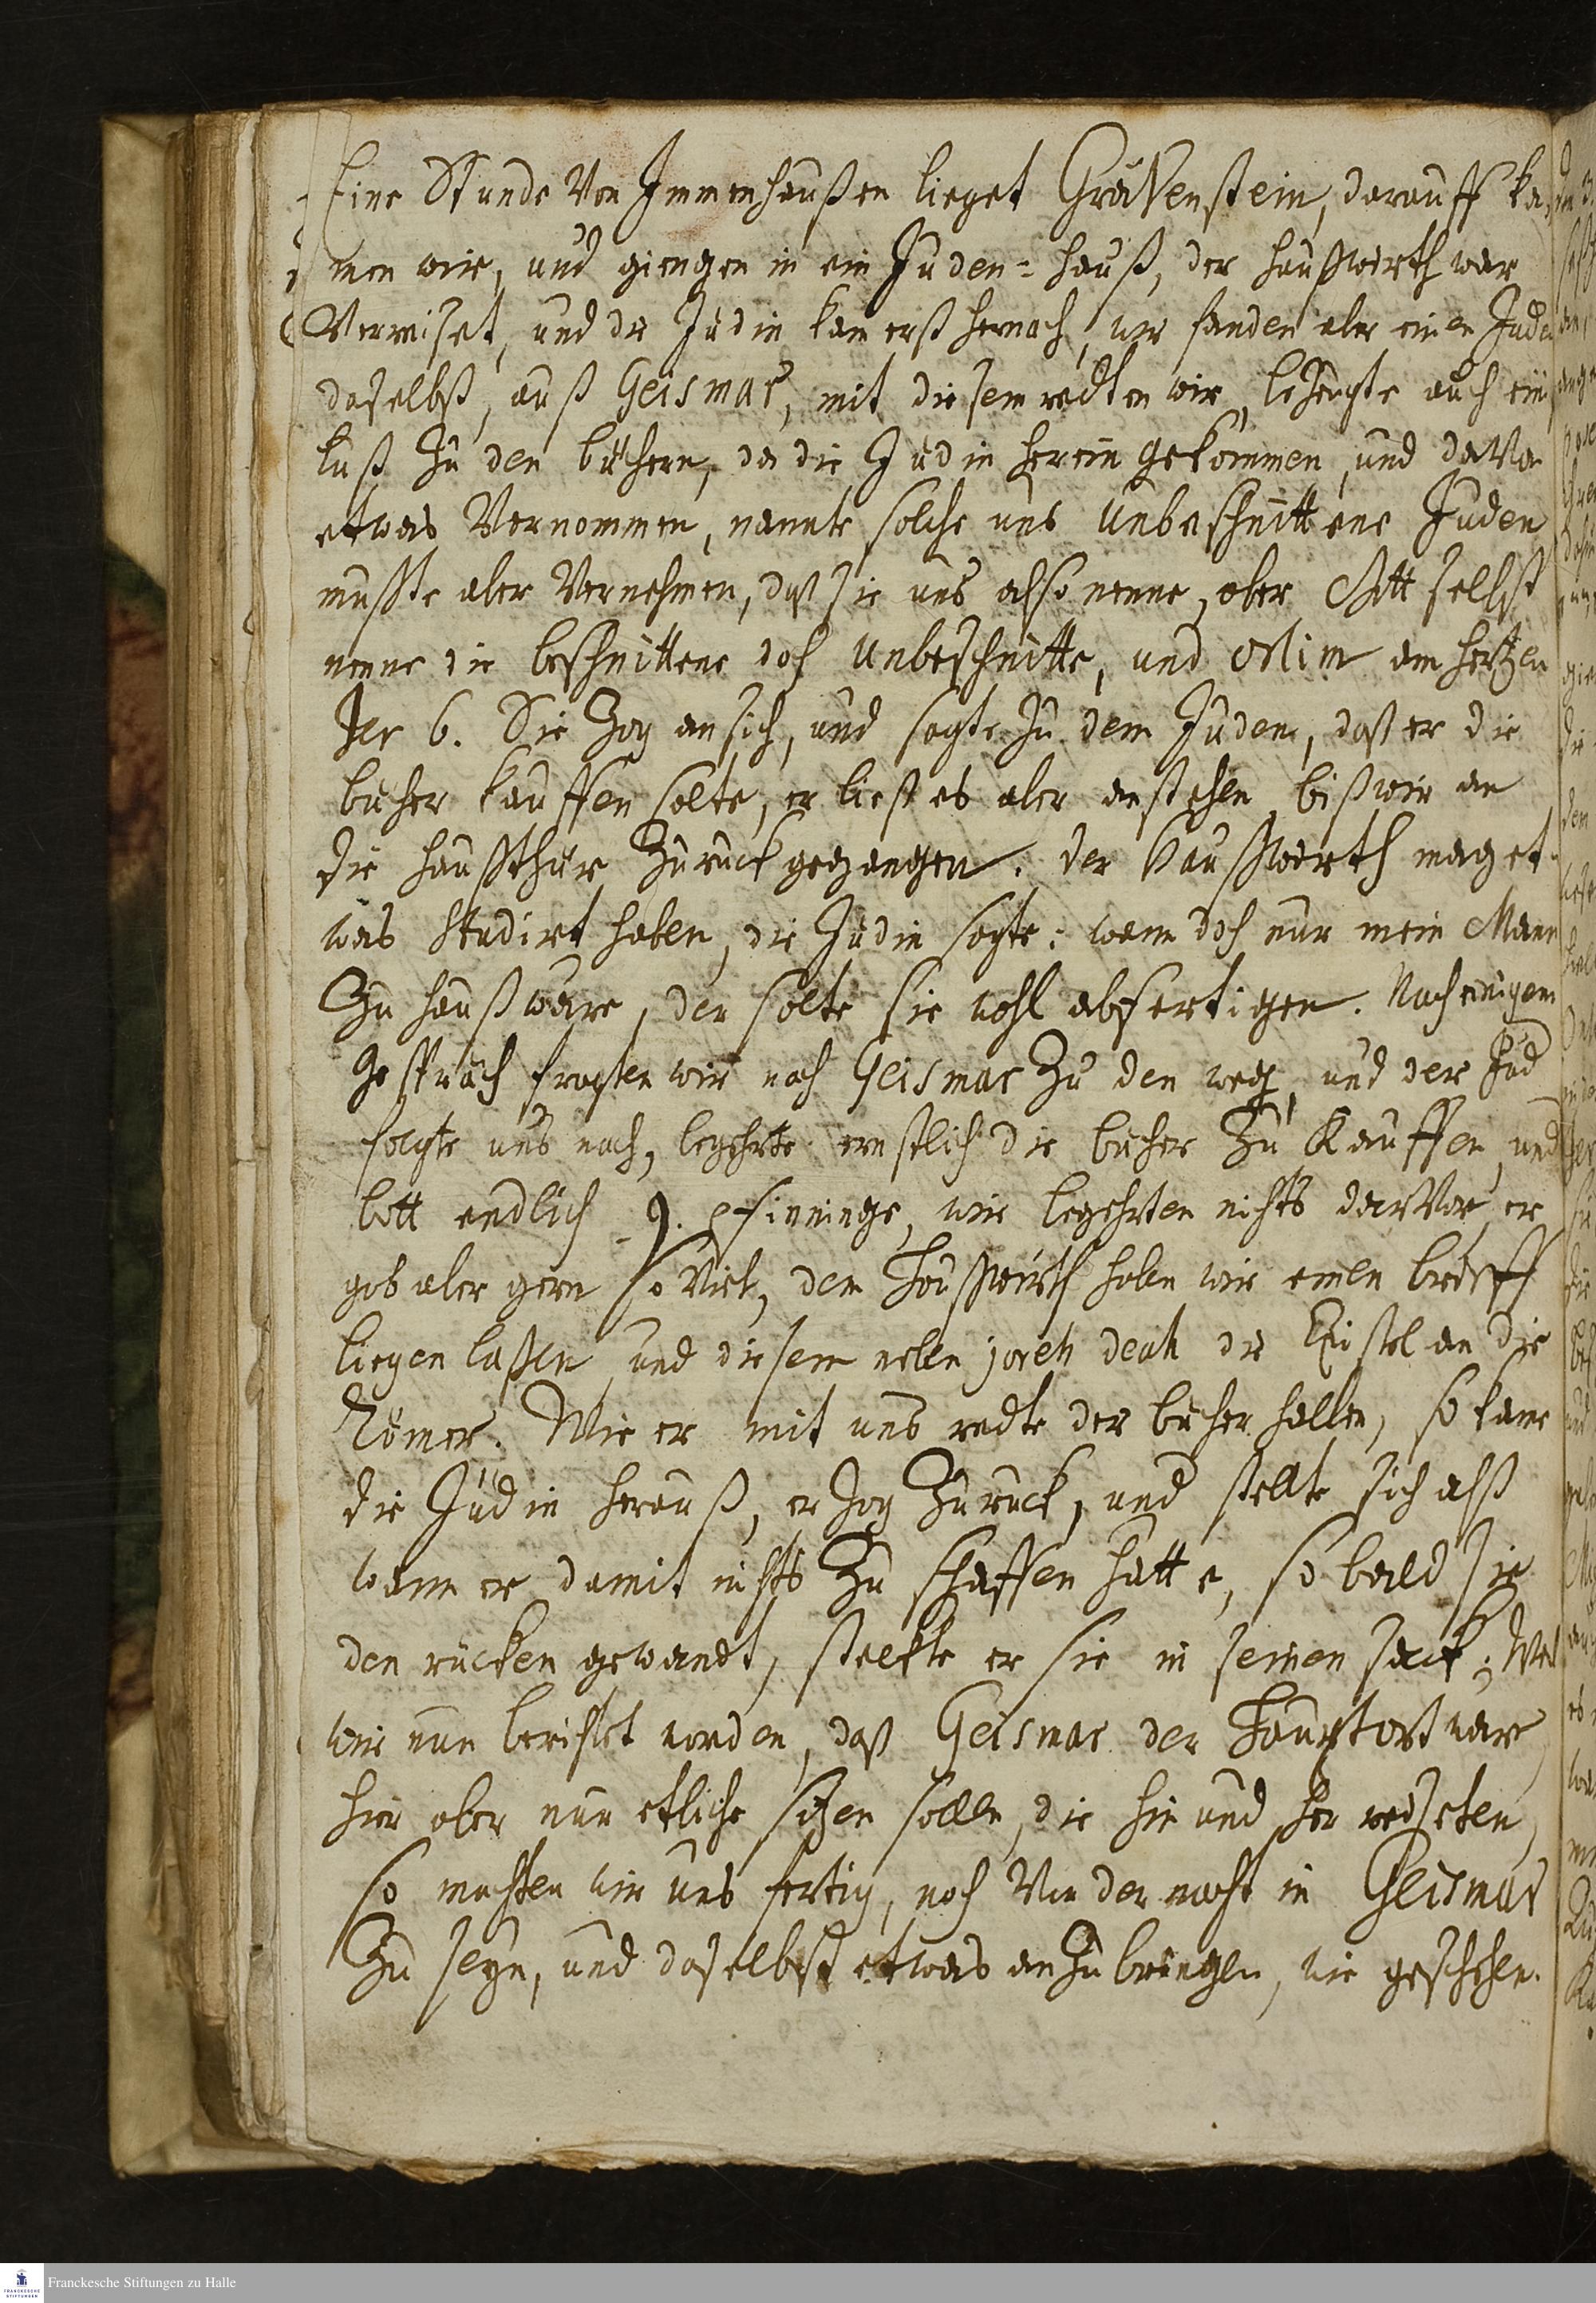 Eine Stunde Von Immenhaußen lieget Grävenstein, darauff ka-
men wir, und giengen in ein Juden-hauß, der haußwirth war
Verreiset, und die Jüdin kam erst hernach, wir fanden aber einen Juden
daselbst, auß Geismar, mit diesem redten wir, bezeugte auch ein
lust zu den büchern, da die Jüdin herein gekommen, und
etwas Vernommen, nannte solche uns Unbeschnittene Juden
muste aber Vernehmen, daß sie uns also nenne, aber Gott selbst
nenne die beschnittene doch unbeschnitte, und am hertzen
Jer 6. Sie zog an sich, und sagte zu dem Juden, daß er die
bücher kauffen solte, er ließ es aber anstehen biß wir an
die haußthür Zurück gegangen. Der haußwirth mag et-
was Studirt haben, die Jüdin sagte: wann doch nur mein Mann
Zu hauß wäre, der solte sie wohl abfertigen. Nach einigem
Gespräch fragten wir nach Geismar Zu den weg, und der Jud
folgte uns nach, begehrte ernstlich die bücher Zu Kauffen, und
bott endlich 9. pfinninge, wir begehrten nichts darvor, er
gab aber gern so Viel, dem Haußwirth haben wir einen
liegen laßen und diesem neben joreh deah die Epistel an die
Römer. Wie er mit uns redte der bücher halben, so kame
die Jüdin herauß, er zog Zurück, und stellte sich alß
wann er damit nichts Zu schaffen hätte, so bald sie
den rücken gewandt, steckte er sie in seinen sack; Weil
wir nun berichtet worden, daß Geismar der Hauptort wäre
hier aber nur etliche sitzen sollen, die hin und her reiseten,
so machten wir uns fertig, noch Vor der nacht in Geismar
Zu seyn, und daselbst etwas anzubringen, wie geschehen.
Franckesche Stiftungen zu Halle